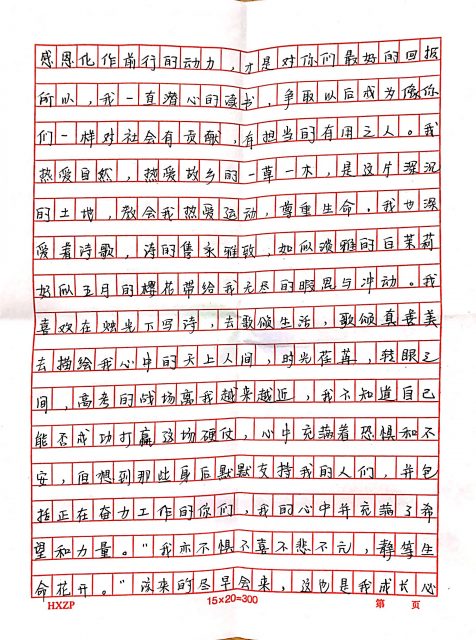 感恩化作前行的动力，才是对你们最好的回报
所以，我一直潜心的读书，争取以后成为像你
们一样对社会有贡献，有担当的有用之人。我
热爱自然，热爱故乡的一草一木，是这片深沉
的土地，教会我热爱运动，尊重生命。我也深
爱着诗歌，诗的隽永雅致，如似淡雅的白茉莉
好似五月的樱花带给我无尽的暇思与冲动。我
喜欢在烛光下写诗，去歌颂生活，歌颂真善美
去描绘我心中的天上人间，时光荏苒，转眼之
间，高考的战场离我越来越近，我不知道自己
能否成功打赢这场硬仗，心中充满着恐惧和不
安，但想到那些身后默默支持我的人们，并包
括正在奋力工作的你们，我的心中并充满了希
望和力量。“我亦不惧不喜不悲不亢，静等生
命花开。”该来的尽早会来，这也是我成长心
HXZP 15×20=300 第 页